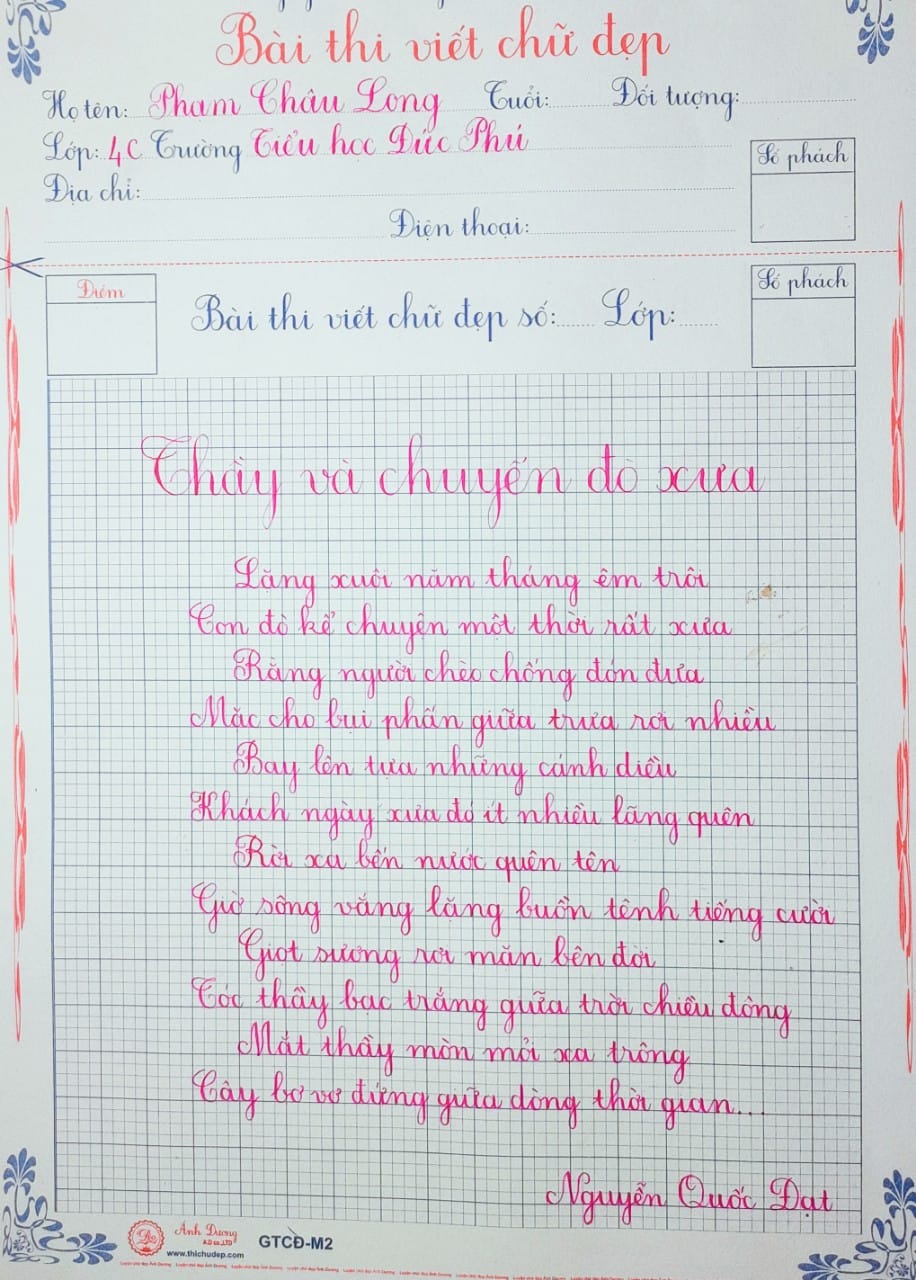 Bài thi viết chữ đẹp
Họ tên: Phạm Châu Long Tuổi: Đối tượng:
Lớp: 4C Trường Tiểu học Đức Phú
Số phách
Địa chỉ:
Điện thoại:
Điểm
Bài thi viết chữ đẹp số: Lớp:
Số phách
Thầy và chuyến đò xưa
Lặng xuôi năm tháng êm trôi
Con đò kể chuyện một thời rất xưa
Rằng người chèo chống đón đưa
Mặc cho bụi phấn giữa trưa rơi nhiều
Bay lên tựa những cánh diều
Khách ngày xưa đó ít nhiều lãng quên
Rời xa bến nước quên tên
Giờ sông vắng lặng buồn tênh tiếng cười
Giọt sương rơi mặn bên đời
Tóc thầy bạc trắng giữa trời chiều đông
Mắt thầy mòn mỏi xa trông
Cây bơ vơ đứng giữa dòng thời gian...
Nguyễn Quốc Đạt
Ánh Dương
A.D co.,LTD
www.thichudep.com
GTCĐ-M2